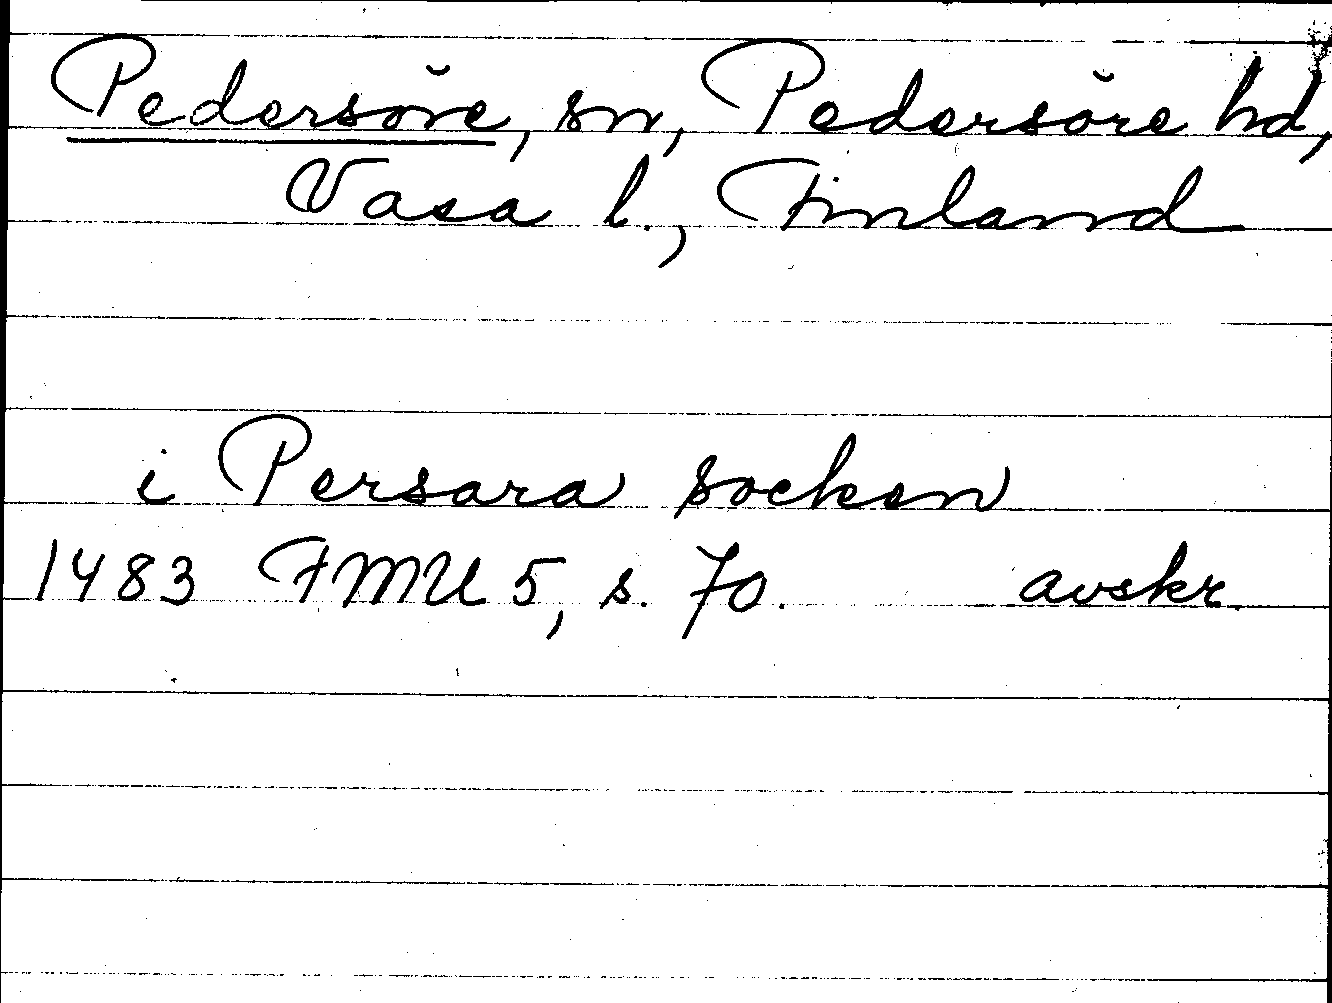 Pedersöre, sn, Pedersöre hd,
Vasa l., Finland
i Persara socken
1483 FMU 5, s. 70. avskr.